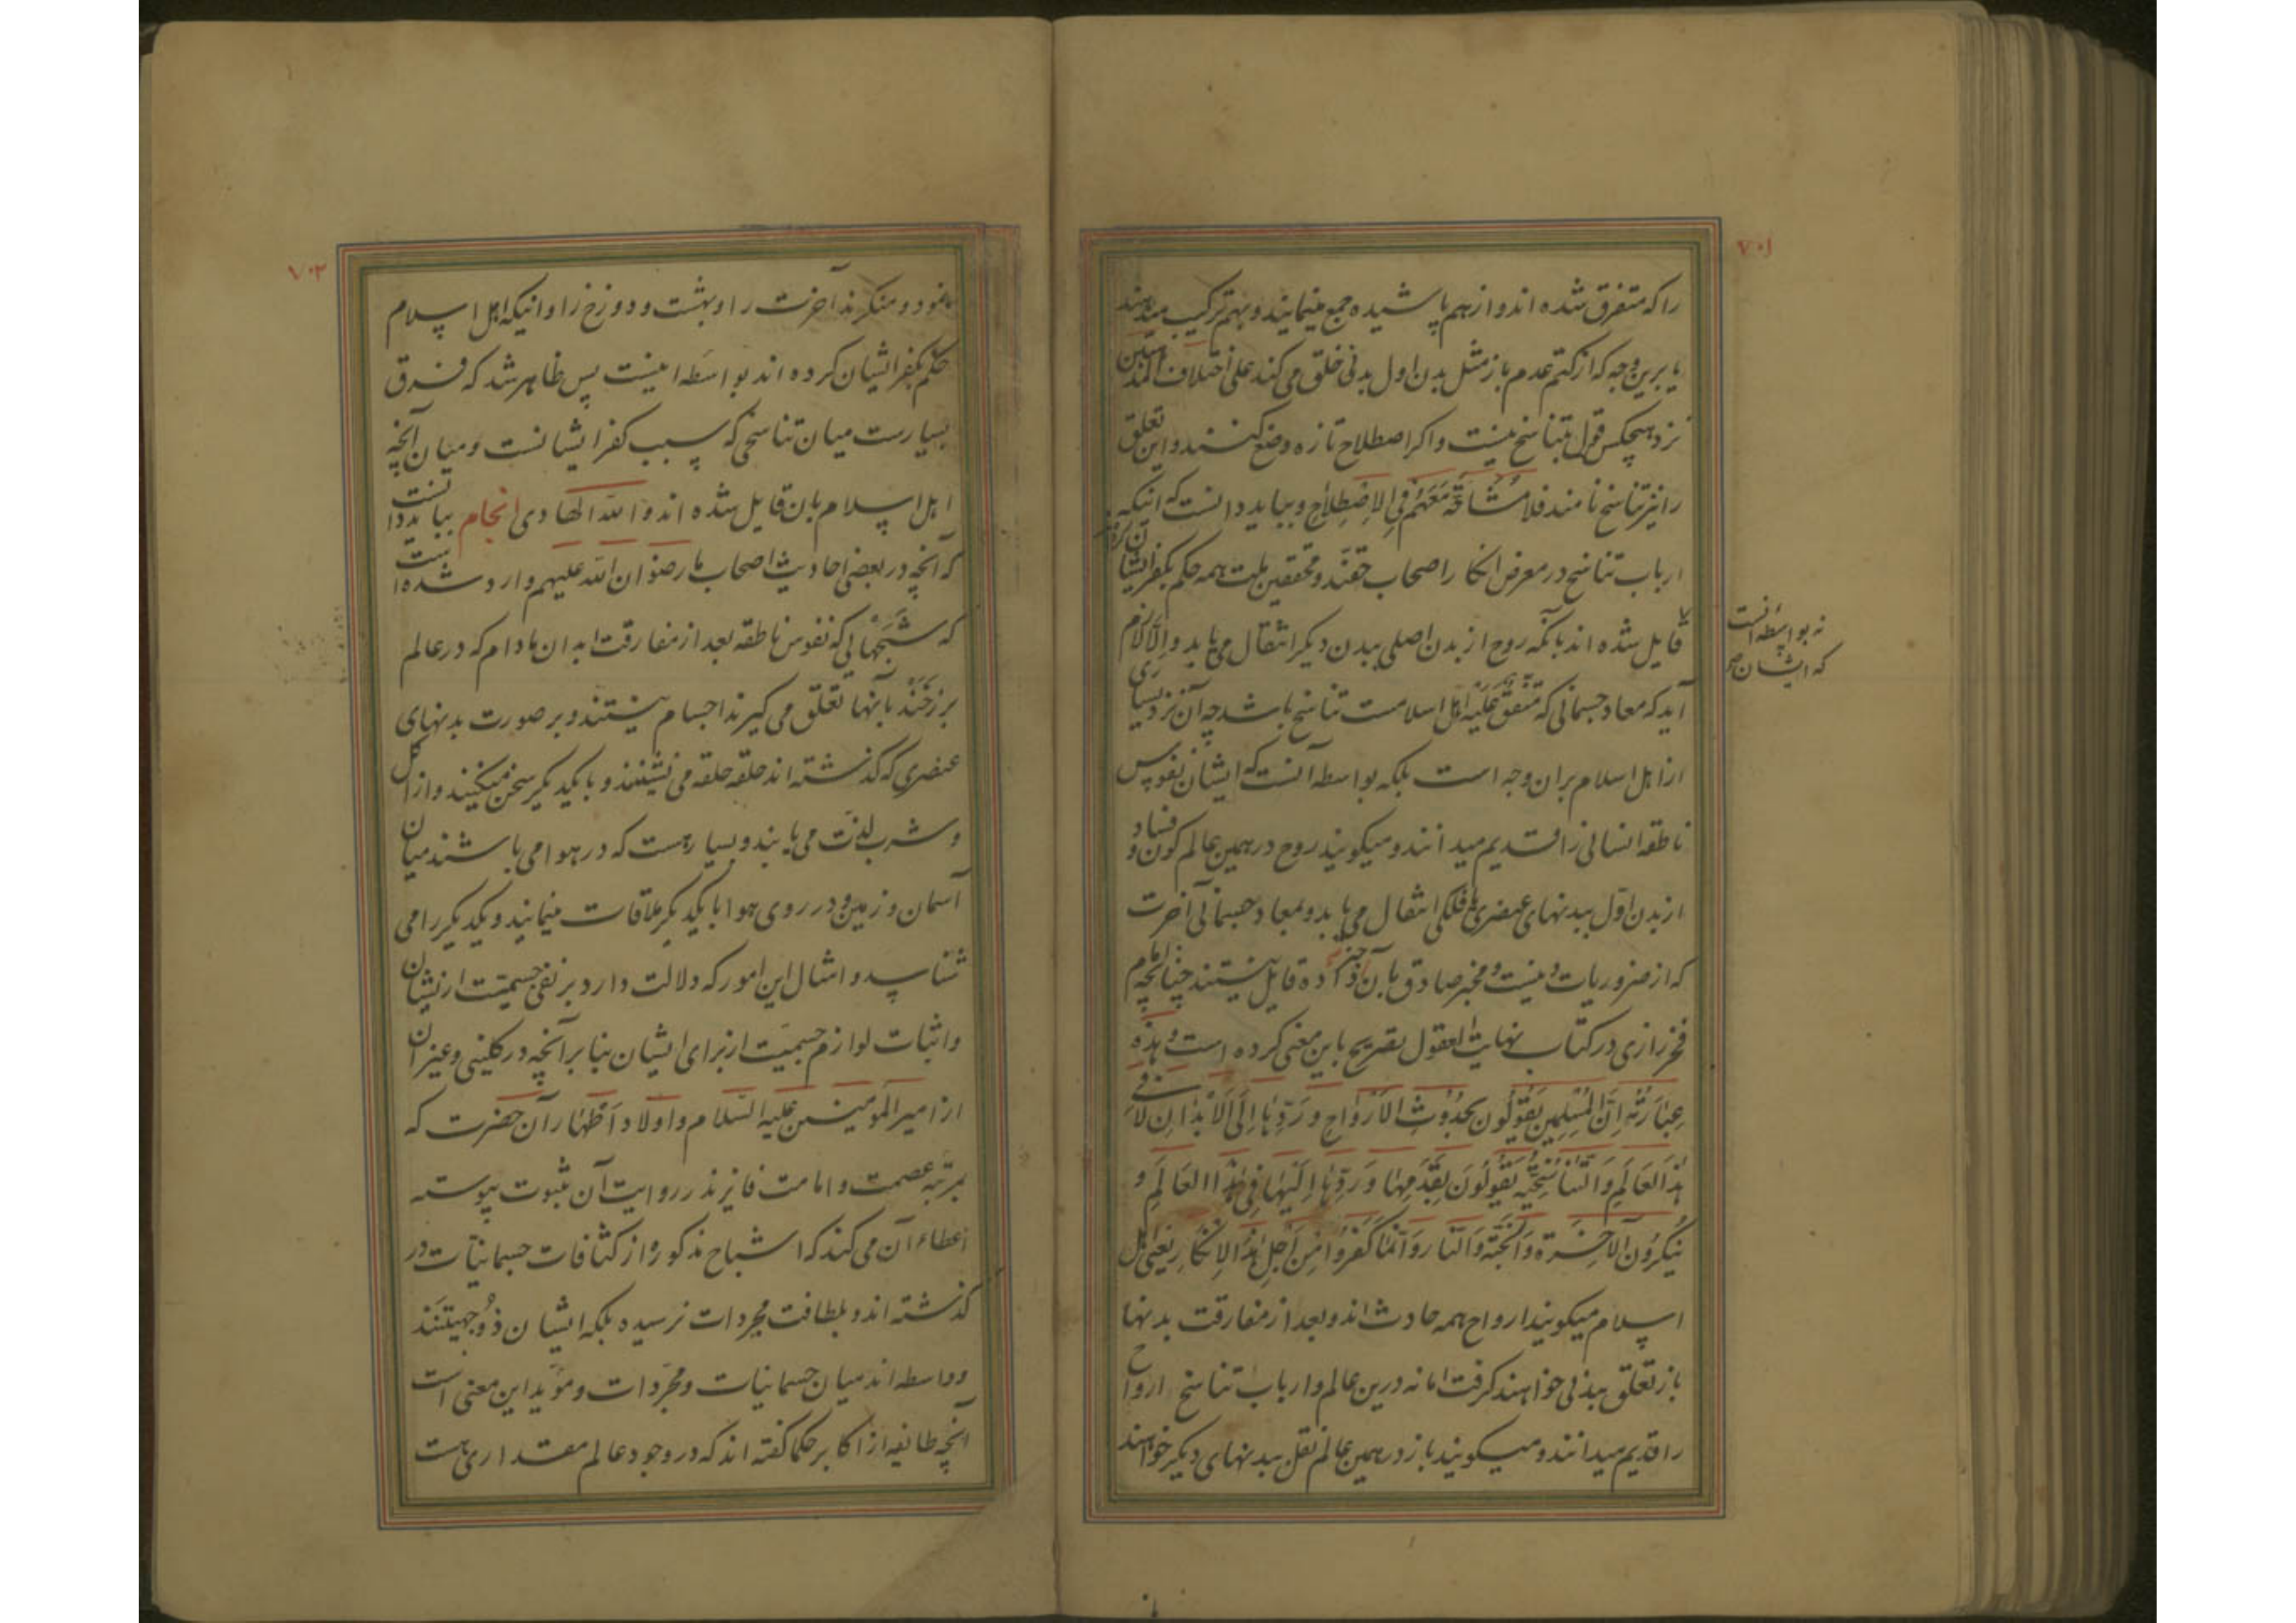 ۷۰۱
را که متفرق شده اند و از هم پاشیده جمع مینمایند و بهم ترکیب میدهند
یا برین وجه که از کتم عدم باز مثل بدن اول بدنی خلق می کند علی اختلاف المذهبین
نزد هیچکس قول بتناسخ نیست و اکر اصطلاح تازه وضع کنند و این تعلق
را نیز تناسخ نامند فلا مُشَاحَّةَ مَعَهُمْ فِی الاِصْطِلاحِ و بباید دانست که اینکه
ارباب تناسخ در معرض انکار اصحاب حقند و محققین ملت همه حکم بکفر ایشان کرده
نه بواسطه آنست
که ایشان
قایل شده اند بآنکه روح از بدن اصلی ببدن دیکر انتقال می یابد و الّا لازم
آید که معاد جسمانی که متفق علیه اهل اسلامست تناسخ باشد چه آن نزد بسیاری
از اهل اسلام بران وجه است بلکه بواسطه آنست که ایشان نفوس
ناطقه انسانی را قدیم میدانند و میکویند روح در همین عالم کون و فساد
از بدن اوّل ببدنهای عنصری یا فلکی انتقال می یابد و بمعاد جسمانی آخرت
که از ضروریات دینست و مخبر صادق بآن خبر داده قایل نیستند چنانچه امام
فخر رازی در کتاب نهایت العقول تصریح باین معنی کرده است و هذه
عِبَارَتُهُ اِنَّ المُسْلِمِینَ یَقُولُونَ بِحُدُوْثِ الاَرْوَاحِ وَ رَدِّهَا اِلَی الاَبْدَانِ لَا فِی
هٰذَا العَالَمِ وَ التَّنَاسُخِیَّه یَقُولُونَ بِقِدَمِهَا وَ رَدِّهَا اِلَیْهَا فِی هٰذَا العَالَمِ وَ
یُنْکِرُونَ الآخِرَةَ وَ الْجَنَّةَ وَ النَّارَ وَ اِنَّمَا کَفَرُوا مِنْ اَجْلِ هٰذَا الاِنْکَارِ یعنی اهل
اسلام میکویند ارواح همه حادث اند و بعد از مفارقت بدنها
باز تعلق ببدنی خواهند کرفت اما نه درین عالم و ارباب تناسخ ارواح
را قدیم میدانند و میکویند باز در همین عالم نقل ببدنهای دیکر خواهند
۷۰۲
نمود و منکرند آخرت را و بهشت و دوزخ را و اینکه اهل اسلام
حکم بکفر ایشان کرده اند بواسطه اینست پس ظاهر شد که فرق
بسیارست میان تناسخی که سبب کفر ایشانست و میان آنچه
اهل اسلام بان قایل شده اند و الله الهادی انجام بباید دانست
که آنچه در بعضی احادیث اصحاب ما رضوان الله علیهم وارد شده است
که شبحهائی که نفوس ناطقه بعد از مفارقت ابدان مادام که در عالم
برزخند بآنها تعلق می کیرند اجسام نیستند و بر صورت بدنهای
عنصری که کذشته اند حلقه حلقه می نشینند و با یکدیکر سخن میکنند و از اکل
و شرب لذّت می یابند و بسیار هست که در هوا می باشند میان
آسمان و زمین و در روی هوا با یکدیکر ملاقات مینمایند و یکدیکر را می
شناسد و امثال این امور که دلالت دارد بر نفی جسمیّت ازیشان
و اثبات لوازم جسمیّت از برای ایشان بنا بر آنچه در کلینی و غیر آن
از امیر المومینن علیه السّلام و اولاد اَطْهَار آن حضرت که
بمرتبه عصمت و امامت فایزند روایت آن بثبوت پیوسته
اعطاء آن می کند که اشباح مذکوره از کثافات جسمانیّات در
کذشته اند و بلطافت مجردات نرسیده بلکه ایشان ذُوجِهَتینَند
و واسطه اند میان جسمانیات و مجرّدات و مؤید این معنی است
آنچه طایفه از اکابر حکما کفته اند که در وجود عالم مقداری هست